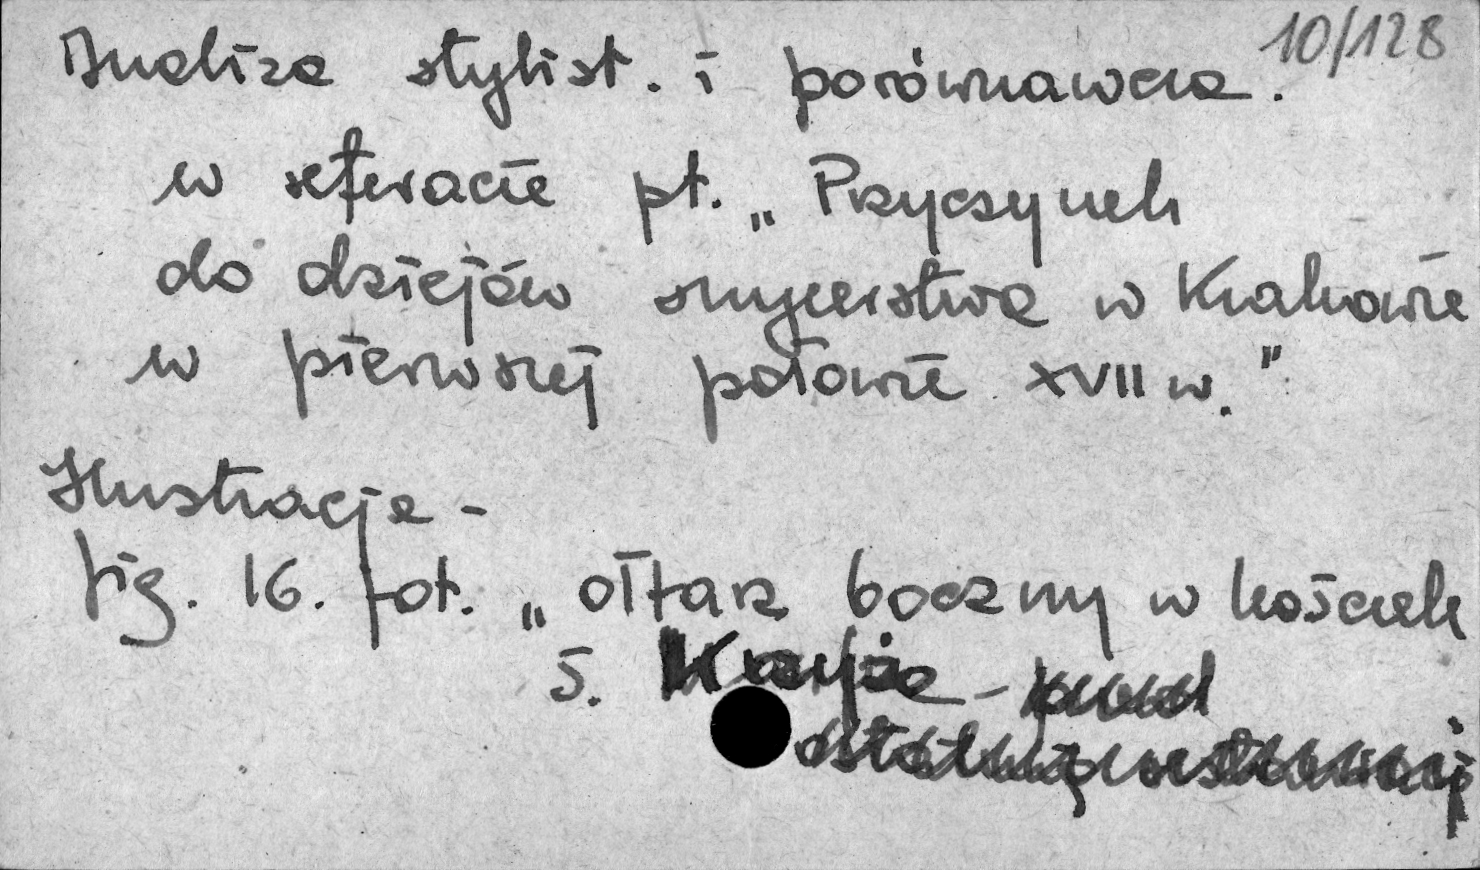 10/128
Analiza stylist. i porównawcza.
w referacie pt. „Przyczynek
do dziejów snycerstwa w Krakowie
w pierwszej połowie XVII w."
Ilustracje -
fig. 16. fot. „ołtarz boczny w kościele
ś. Krzyża - przed